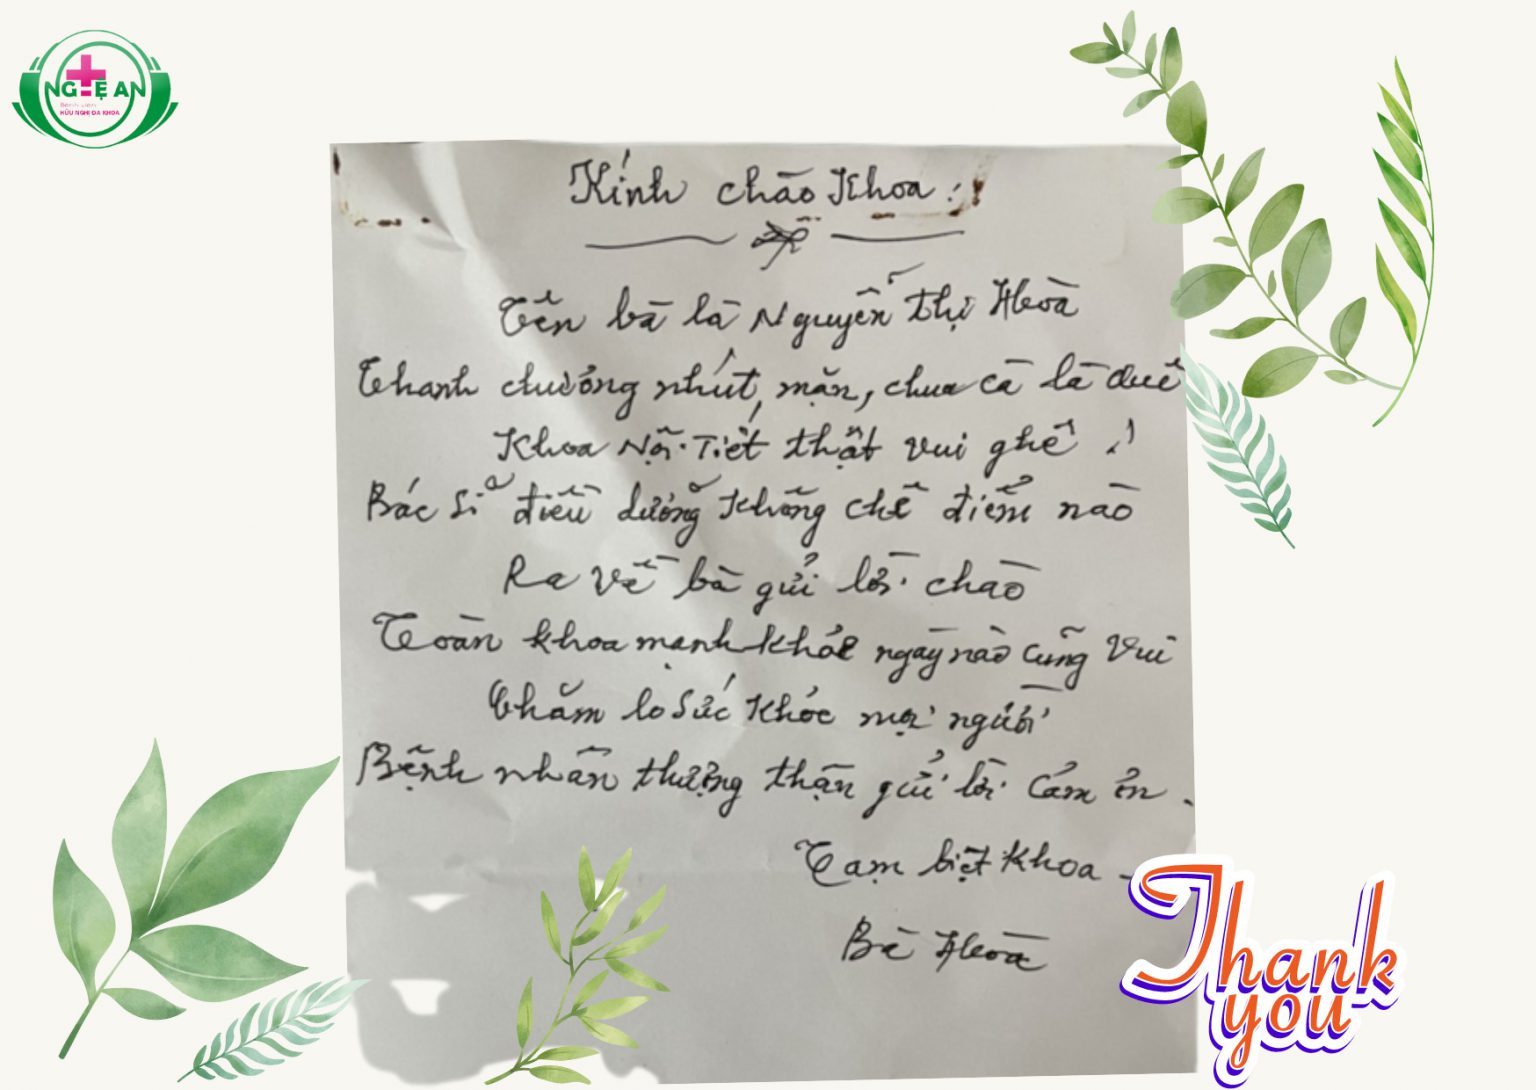 NGHỆ AN
Bệnh viện
HỮU NGHỊ ĐA KHOA
Kính chào Khoa :
Tên bà là Nguyễn Thị Hoà
Thanh chương nhút, mặn, chua cà là quê
Khoa Nội. Tiết thật vui ghê !
Bác sĩ điều dưỡng không chê điểm nào
Ra về bà gửi lời chào
Toàn khoa mạnh khỏe ngày nào cũng vui
Chăm lo sức khỏe mọi người
Bệnh nhân thượng thận gửi lời cảm ơn .
Tạm biệt khoa -
Bà Hoà
Thank
you